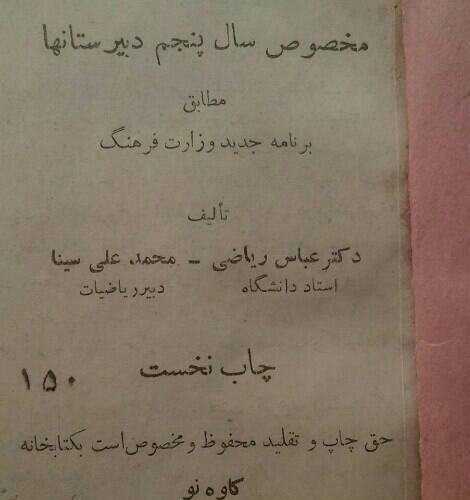 مخصوص سال پنجم دبیرستانها
مطابق
برنامه جدید وزارت فرهنگ
تألیف
دکتر عباس ریاضی - محمد علی سینا
استاد دانشگاه دبیر ریاضیات
چاپ نخست
۱۵۰
حق چاپ و تقلید محفوظ و مخصوص است بکتابخانه
کاوه نو